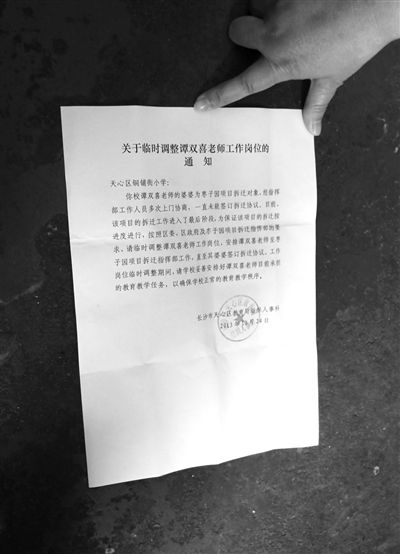 关于临时调整谭双喜老师工作岗位的
通 知
天心区铜铺街小学：
你校谭双喜老师的婆婆为枣子园项目拆迁对象，经指挥
部工作人员多次上门协商，一直未能签订拆迁协议。目前，
该项目的拆迁工作进入了最后阶段，为保证该项目的拆迁按
进度进行，按照区委、区政府及枣子园项目拆迁指挥部的要
求，请临时调整谭双喜老师工作岗位，安排谭双喜老师至枣
子园项目拆迁指挥部工作，直至其婆婆签订拆迁协议。工作
岗位临时调整期间，请学校妥善安排好谭双喜老师目前承担
的教育教学任务，以确保学校正常的教育教学秩序。
长沙市天心区教育局组织人事科
2013年 月24日